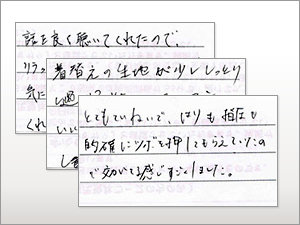 話を良く聴いてくれたので、
リラッ
気に
くれ
着替えの生地が少ししっとり
いい
しま
とてもていねいで、はりも指圧も
的確にツボを押してもらえていたの
で効いてる感じすごくしました。